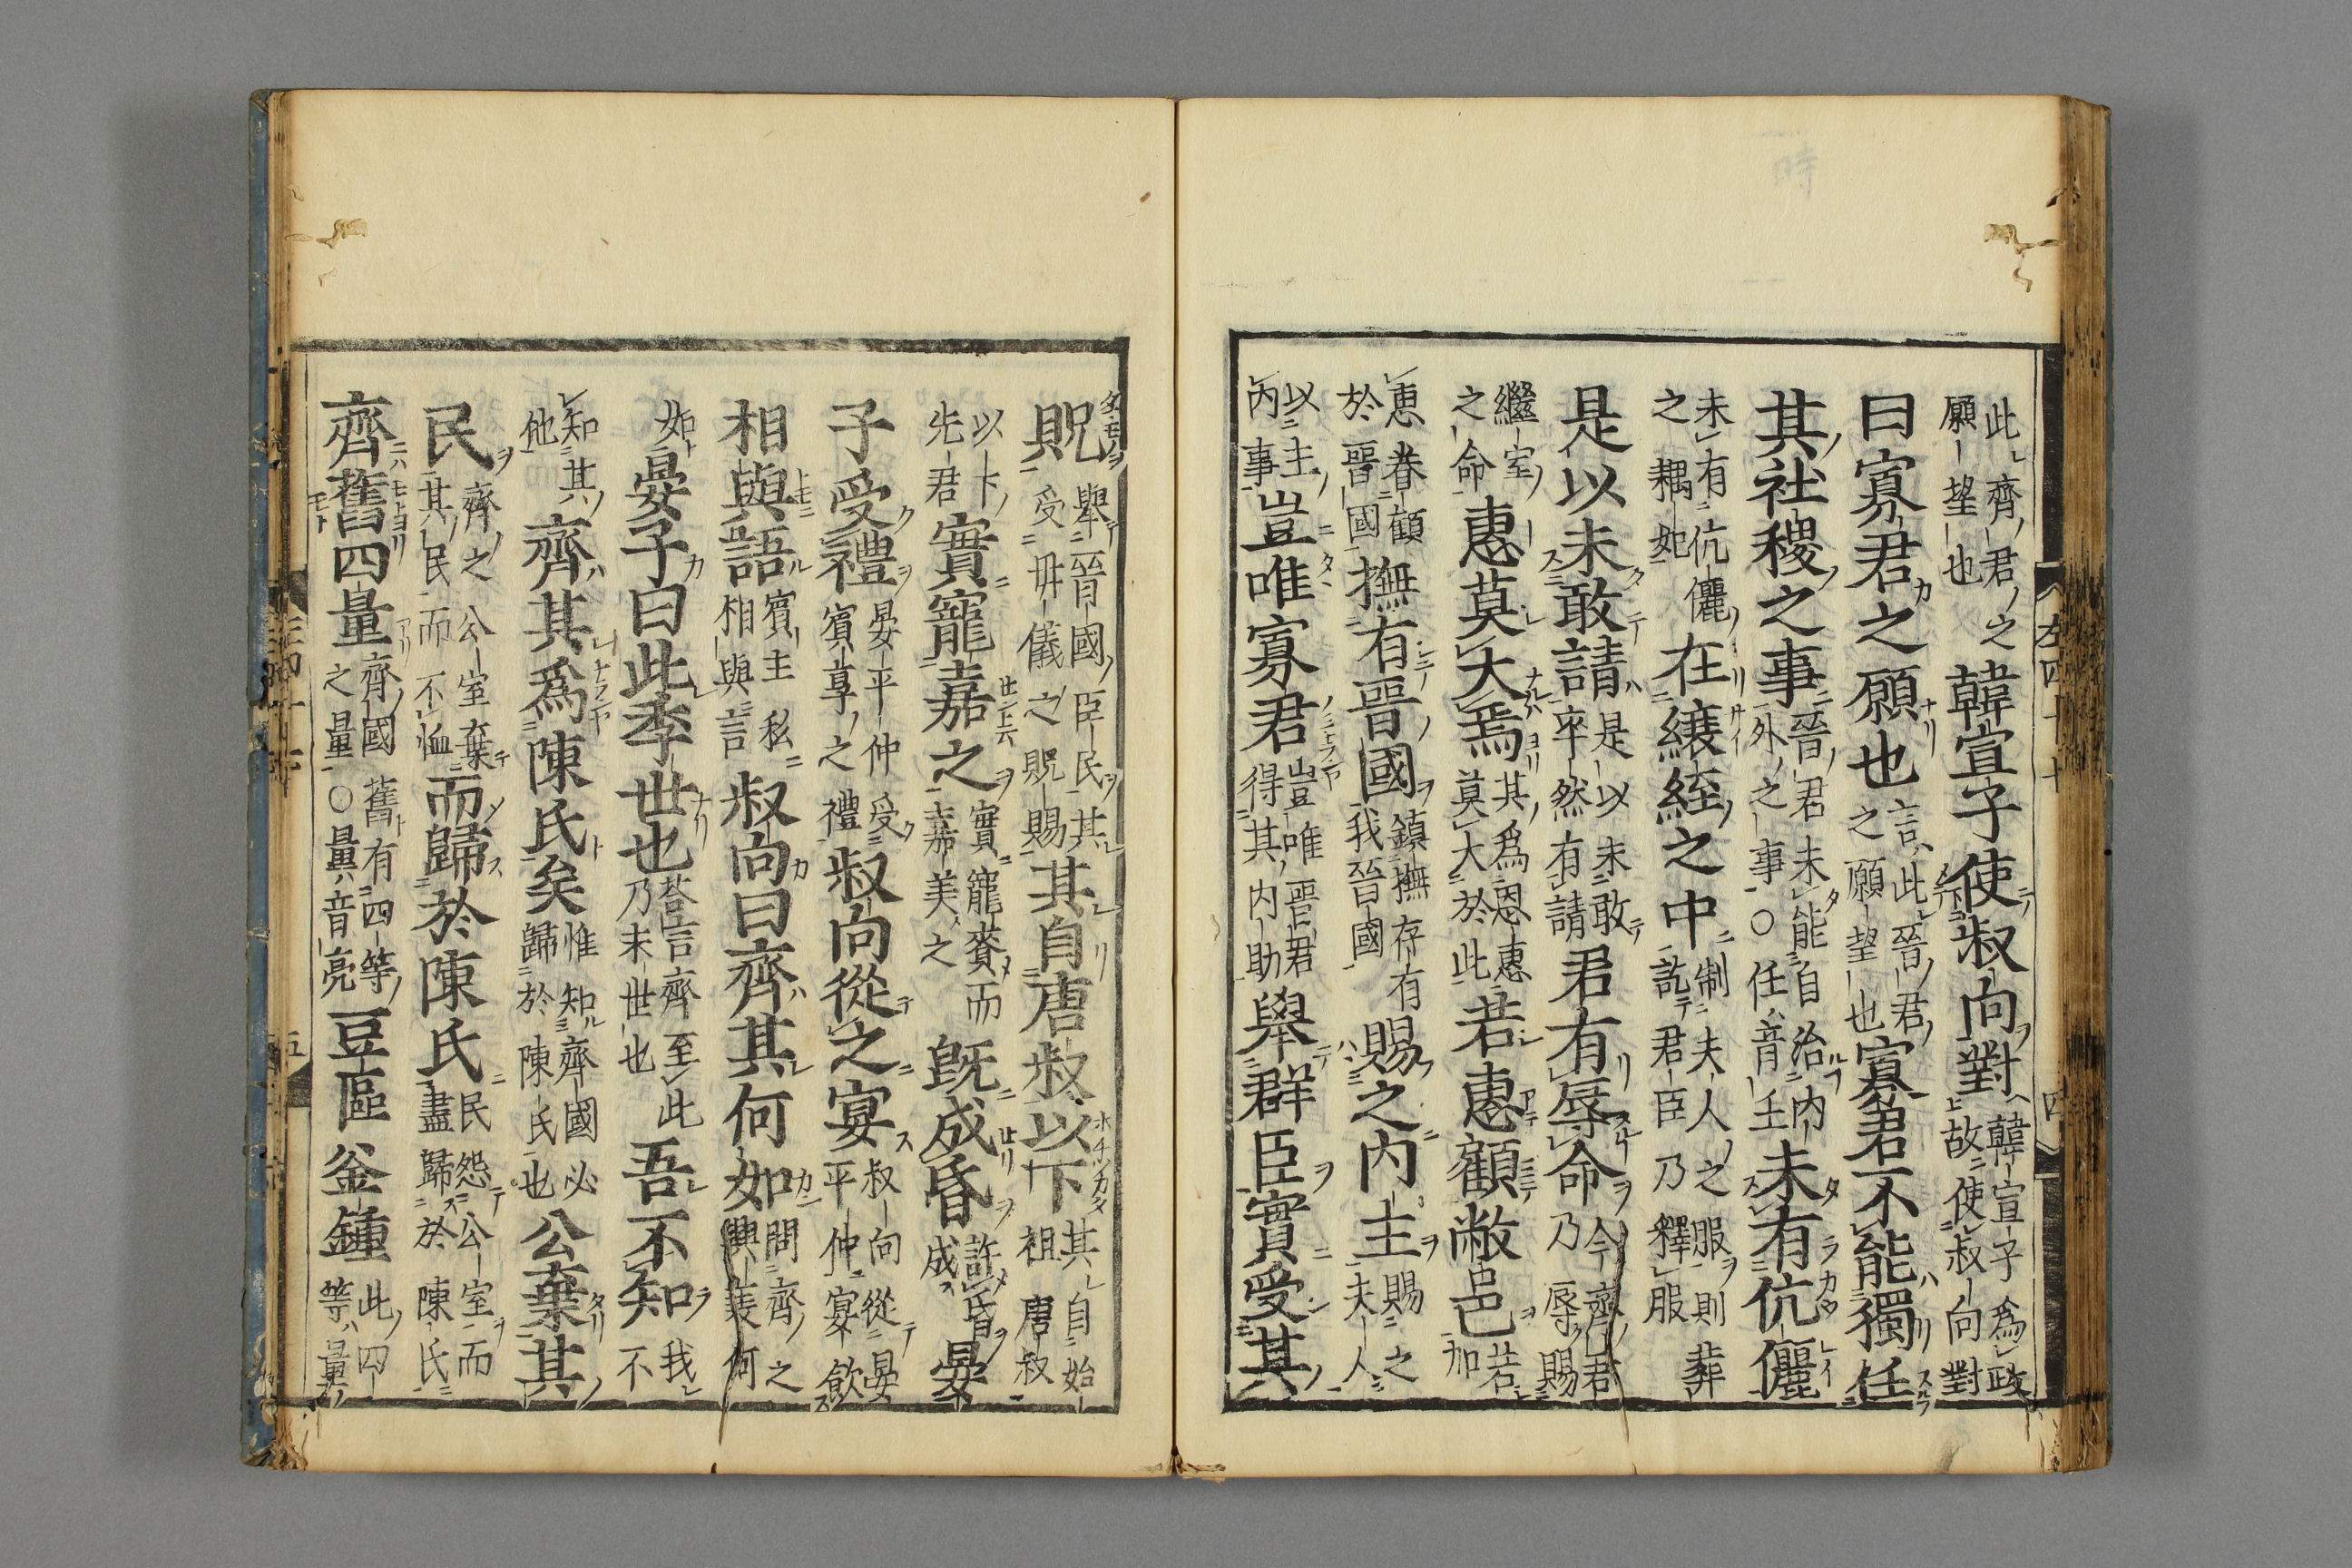 此齊君之願望也韓宣子使叔向對韓宣子為政故使叔向對
曰寡君之願也言此晉君之願望也寡君不能獨任
其社稷之事晉君未能自治內外之事○任音壬未有伉儷
未有伉儷之耦妃在縗絰之中制夫人之服則葬訖君臣乃釋服
是以未敢請是以未敢卒然有請君有辱命今齊君乃辱賜
繼室之命惠莫大焉其爲恩惠莫大於此若惠顧敝邑若加
惠眷顧於晉國撫有晉國鎮撫存有我晉國賜之內主賜之夫人
以主內事豈唯寡君豈唯晉君得其內助舉群臣實受其
貺舉晉國臣民其受毌儀之貺賜其自唐叔以下其自始祖唐叔
以下先君實寵嘉之實寵賚而嘉美之旣成昏許昏成晏
子受禮晏平仲受賓享之禮叔向從之宴叔向從晏平仲宴飲
相與語賓主私相與言叔向曰齊其何如問齊之興衰何
如晏子曰此季世也荅言齊至此乃末世也吾不知我不
知其他齊其爲陳氏矣惟知齊國必歸於陳氏也公棄其
民齊之公室棄其民而不恤而歸於陳氏民怨公室而盡歸於陳氏
齊舊四量齊國舊有四等之量○量音亮豆區釜鍾此四等量